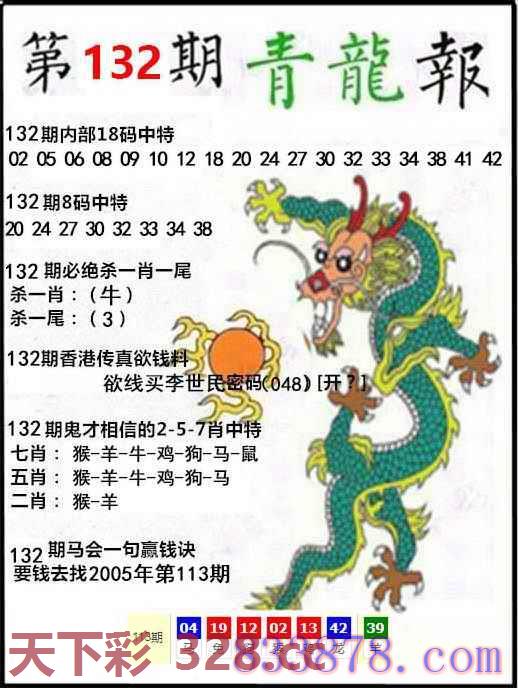 第132期 青龍報
132期内部18码中特
02 05 06 08 09 10 12 18 20 24 27 30 32 33 34 38 41 42
132期8码中特
20 24 27 30 32 33 34 38
132期必绝杀一肖一尾
杀一肖：（牛）
杀一尾：（3）
132期香港传真欲钱料
欲线买李世民密码(048) [开？]
132期鬼才相信的2-5-7肖中特
七肖： 猴-羊-牛-鸡-狗-马-鼠
五肖： 猴-羊-牛-鸡-狗-马
二肖： 猴-羊
132期马会一句赢钱诀
要钱去找2005年第113期
113期 04 19 12 02 13 42 39
龙 羊
天下彩